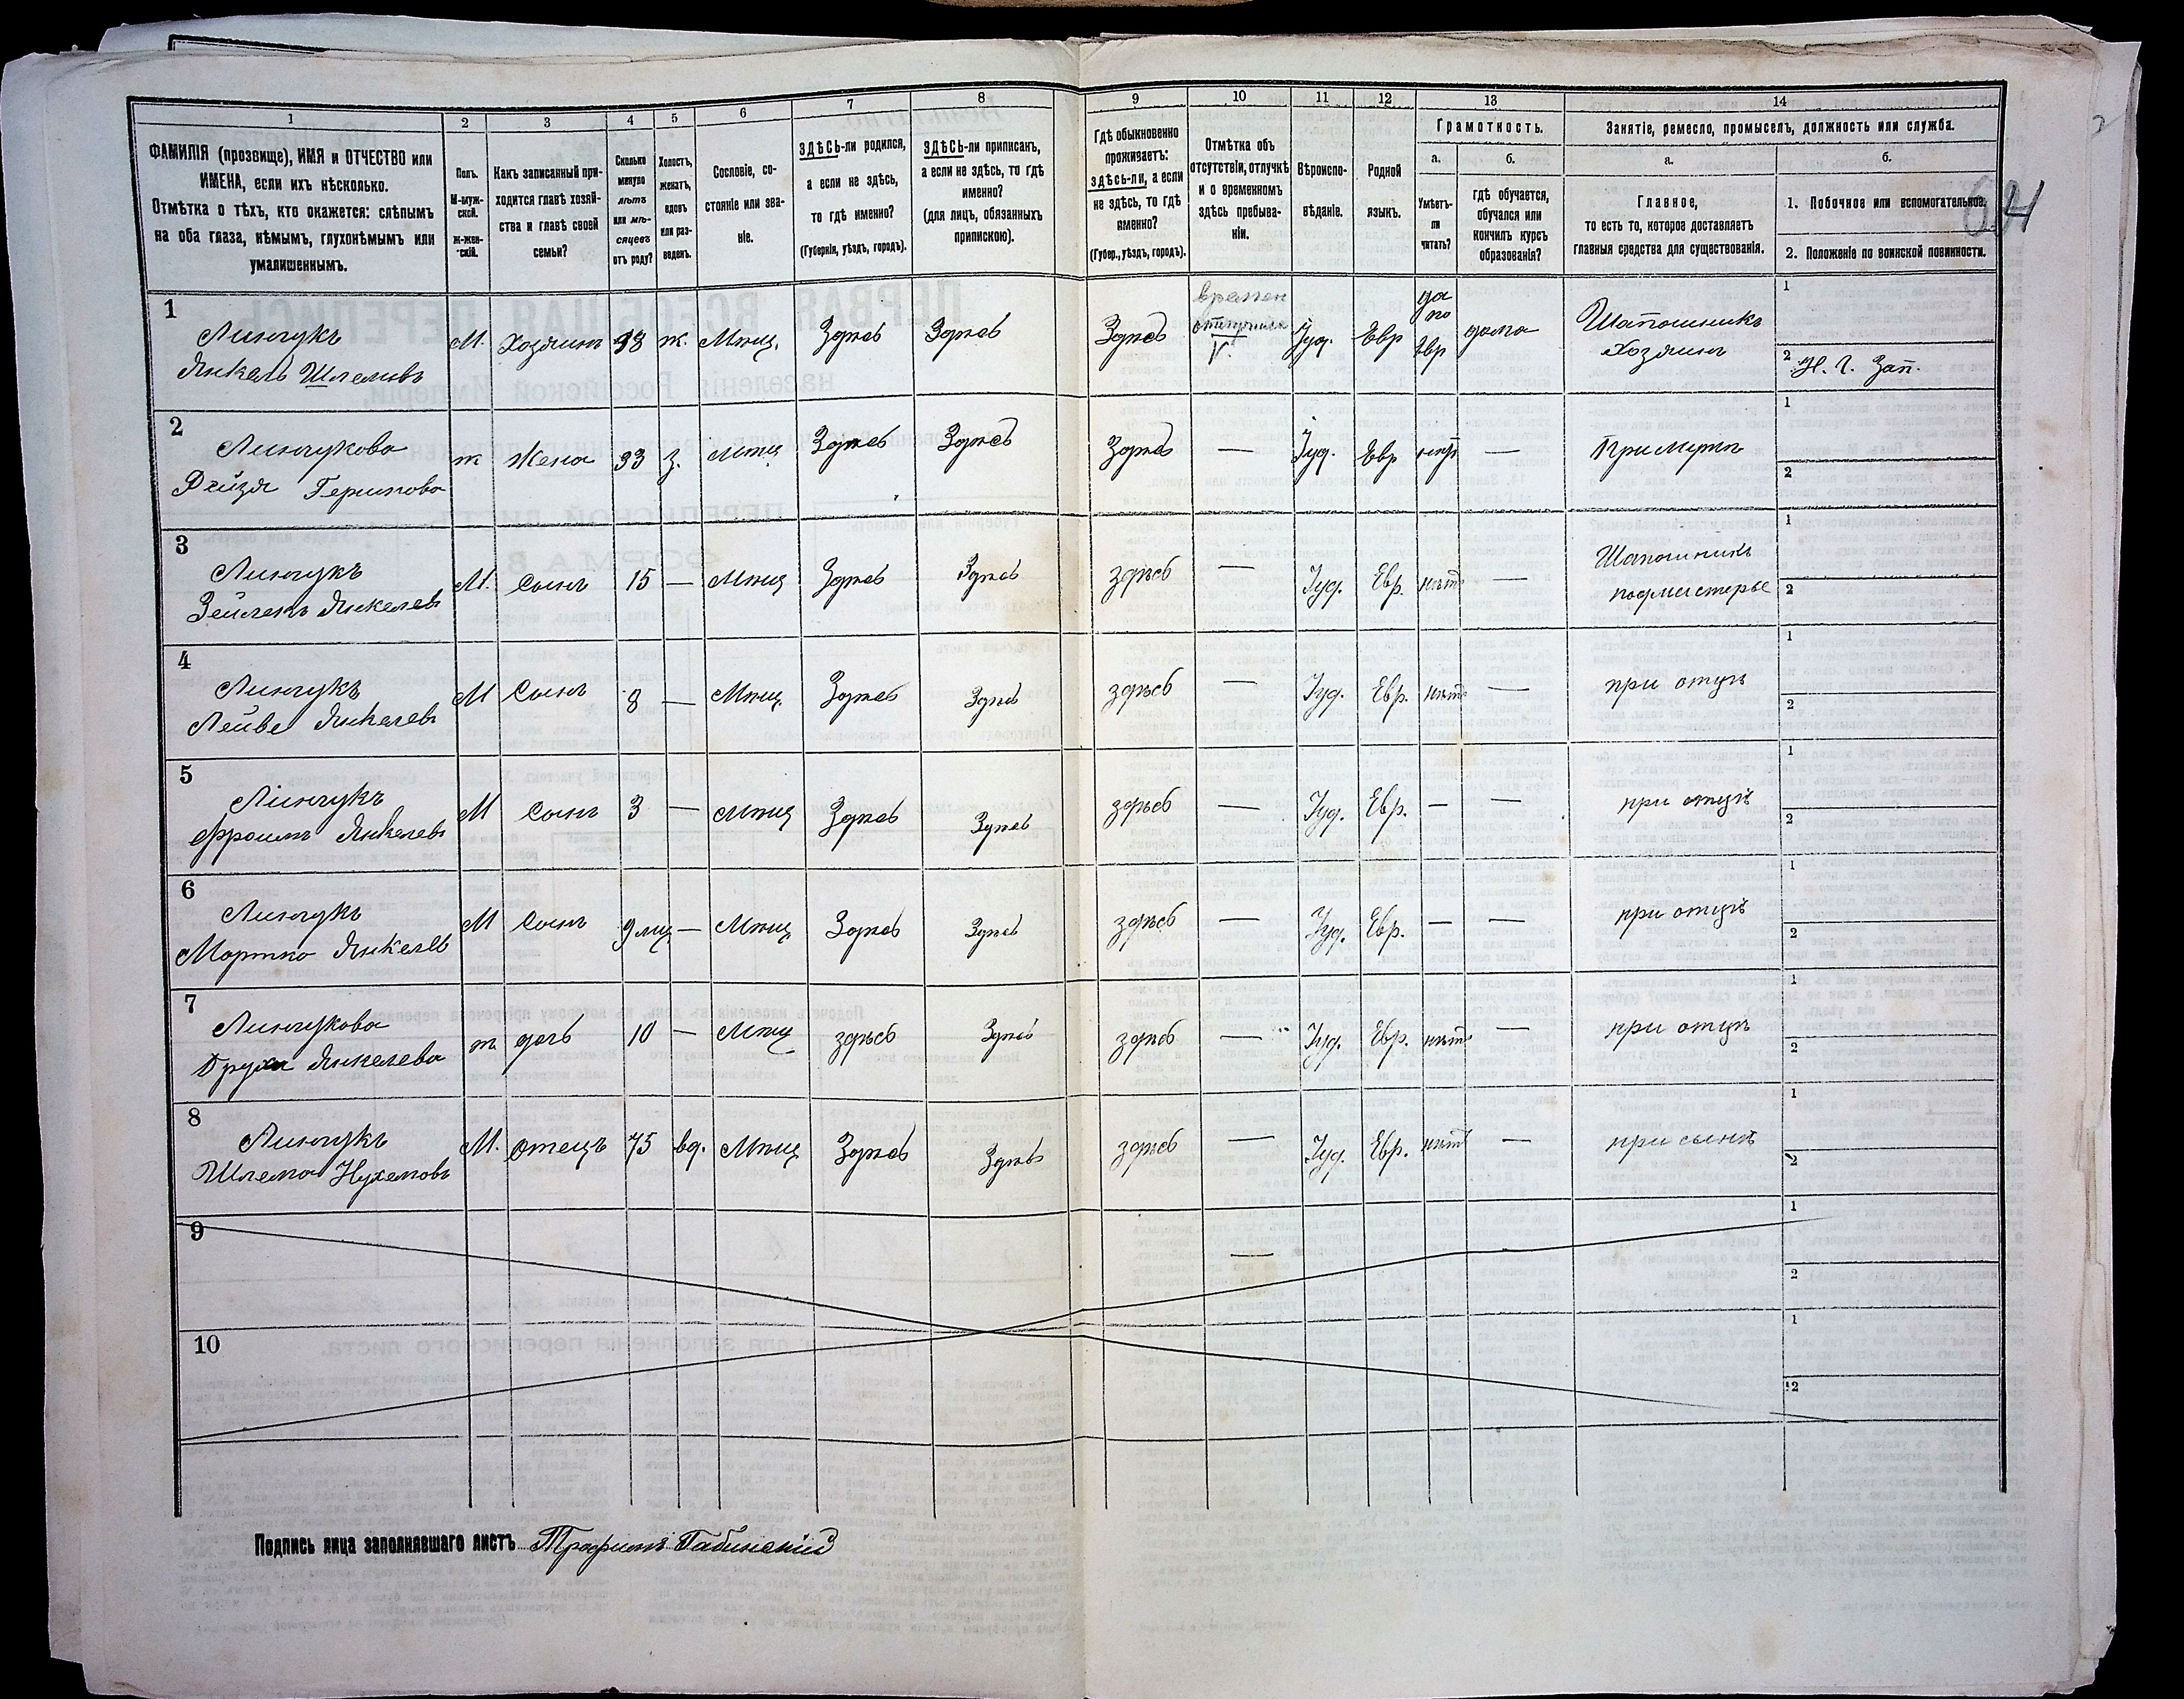 1 2 3 4 5 6 7 8 9 10 11 12 13 14
ФАМИЛІЯ (прозвище), ИМЯ и ОТЧЕСТВО или
ИМЕНА, если ихъ нѣсколько.
Отмѣтка о тѣхъ, кто окажется: слѣпымъ
на оба глаза, нѣмымъ, глухонѣмымъ или
умалишеннымъ.
Полъ.
М-муж-
ской.
Ж-жен-
скій.
Какъ записанный при-
ходится главѣ хозяй-
ства и главѣ своей
семьи?
Сколько
минуло
лѣтъ
или мѣ-
сяцевъ
отъ роду?
Холостъ,
женатъ,
вдовъ
или раз-
веденъ.
Сословіе, со-
стояніе или зва-
ніе.
ЗДѢСЬ-ли родился,
а если не здѣсь,
то гдѣ именно?
(Губернія, уѣздъ, городъ).
ЗДѢСЬ-ли приписанъ,
а если не здѣсь, то гдѣ
именно?
(для лицъ, обязанныхъ
припискою).
Гдѣ обыкновенно
проживаетъ:
здѣсь-ли, а если
не здѣсь, то гдѣ
именно?
(Губер., уѣздъ, городъ).
Отмѣтка объ
отсутствіи, отлучкѣ
и о временномъ
здѣсь пребыва-
ніи.
Вѣроиспо-
вѣданіе.
Родной
языкъ.
Грамотность.
а.
Умѣетъ-
ли
читать?
б.
гдѣ обучается,
обучался или
кончилъ курсъ
образованія?
Занятіе, ремесло, промыселъ, должность или служба.
а.
Главное,
то есть то, которое доставляетъ
главныя средства для существованія.
б.
1. Побочное или вспомогательное.
2. Положеніе по воинской повинности.
64
1
Линчукъ
Янкель Шлемовъ
М. Хозяинъ 38 ж. Мѣщ. Здѣсь Здѣсь Здѣсь
времен
V.
Іуд. Евр
да
по
Евр
дома
Шапошникъ
Хозяинъ
1
2
2
Линчукова
Рейзя Гершкова
ж Жена 33 з. Мѣщ Здѣсь Здѣсь Здѣсь — Іуд. Евр нѣтъ — При мужѣ
1
2
3
Линчукъ
Зейлекъ Янкелевъ
М. Сынъ 15 — Мѣщ Здѣсь Здѣсь здѣсь — Іуд. Евр. нѣтъ —
Шапошникъ
подмастерье
1
2
4
Линчукъ
Лейве Янкелевъ
М Сынъ 8 — Мѣщ. Здѣсь Здѣсь здѣсь — Іуд. Евр. нѣтъ — при отцѣ
1
2
5
Линчукъ
Фроимъ Янкелевъ
М Сынъ 3 — Мѣщ Здѣсь Здѣсь здѣсь — Іуд. Евр. — — при отцѣ
1
2
6
Линчукъ
Мортко Янкелев
М Сынъ 9 мц — Мѣщ Здѣсь Здѣсь здѣсь — Іуд. Евр. — — при отцѣ
1
2
7
Линчукова
Бруха Янкелева
ж дочь 10 — Мѣщ здѣсь Здѣсь здѣсь — Іуд. Евр. нѣтъ — при отцѣ
1
2
8
Линчукъ
Шлема Нухемовъ
М. Отецъ 75 вд. Мѣщ Здѣсь Здѣсь здѣсь — Іуд. Евр. нѣтъ — при сынѣ
1
2
9
—
1
2
10
1
2
Подпись лица заполнявшаго листъ